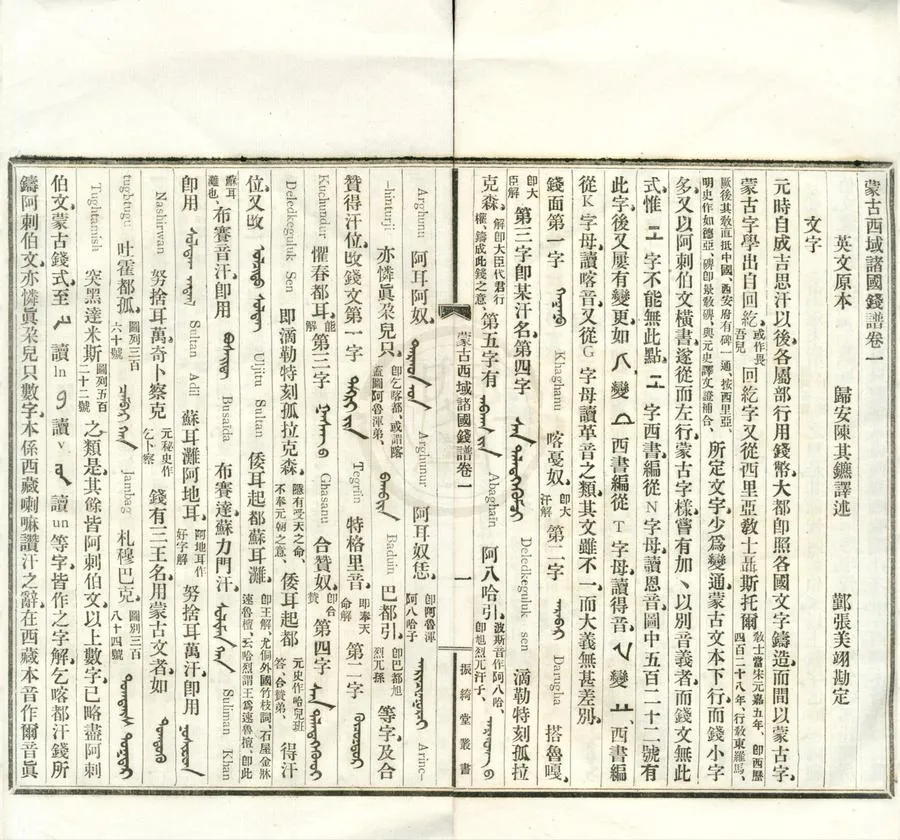 蒙古西域諸國錢譜卷一
英文原本　歸安陳其鑣譯述　鄞張美翊勘定
文字
元時自成吉思汗以後各屬部行用錢幣大都卽照各國文字鑄造而間以蒙古字
蒙古字學出自回紇或作畏吾兒回紇字又從西里亞敎士聶斯托爾敎士當宋元嘉五年、卽西歷四百二十八年行敎東羅馬、
厥後其敎直抵中國、西安府有碑一通、按西里亞、明史作如德亞、碑卽景敎碑、與元史譯文證補合、所定文字少爲變通蒙古文本下行而錢小字
多又以阿剌伯文橫書遂從而左行蒙古字樣嘗有加、以別音義者而錢文無此
式惟字不能無此點字西書編從N字母讀恩音圖中五百二十二號有
此字後又屢有變更如變西書編從T字母讀得音變西書編
從K字母讀喀音又從G字母讀革音之類其文雖不一而大義無甚差別
錢面第一字 Khaghanu 喀戞奴卽大汗解第二字 Darugha 搭魯嘎、
卽大臣解第三字卽某汗名第四字 Deledkeguluk sen 滆勒特刻孤拉
克森、解卽大臣代君行權、鑄成此錢之意、第五字有 Abaghain 阿八哈引、波斯音作阿八哈、卽旭烈兀汗子、
蒙古西域諸國錢譜卷一　一　振綺堂叢書
Arghunu 阿耳阿奴、 Arghunur 阿耳奴恁、卽阿魯渾阿八哈子 Arinc-
-hinturji 亦憐眞朶兒只、卽乞喀都、或謂喀蓋圖阿魯渾弟、 Baduin 巴都引、卽巴都旭烈兀孫等字、及合
贊得汗位、改錢文第一字 Tegriin 特格里音、卽奉天命解第二字
Kuchundur 懼春都耳、能解第三字 Ghasanu 合贊奴、卽合贊第四字
Deledkeguluk Sen 卽滆勒特刻孤拉克森、隱有受天之命、不奉元朝之意、倭耳起都元史作哈兒班答、合贊弟、得汗
位又改 Uljitu Sultan 倭耳起都蘇耳灘、卽王解、尤侗外國竹枝詞、石屋金牀速魯檀、云哈烈謂王爲速魯檀、卽此
蘇耳灘也、布賽音汗卽用 Busaida 布賽達蘇力門汗、 Suliman Khan
卽用 Sultan Adil 蘇耳灘阿地耳、阿地耳作好字解努捨耳萬汗卽用
Nashirwan 努捨耳萬奇卜察克元秘史作乞卜察錢有三王名用蒙古文者如
tughtugu 吐霍都孤、圖列三百六十號 Jambag 札穆巴克、圖列三百八十四號
Tughtamish 突黑達米斯圖列五百二十二號之類是其餘皆阿剌伯文以上數字已略盡阿剌
伯文蒙古錢式至讀ln讀v讀un等字皆作之字解乞喀都汗錢所
鑄阿剌伯文亦憐眞朶兒只數字本係西藏喇嘛讚汗之辭在西藏本音作爾音眞